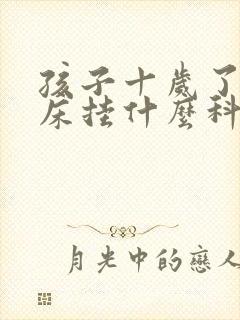 孩子十歲了
床掛什麼科
月光中的戀人